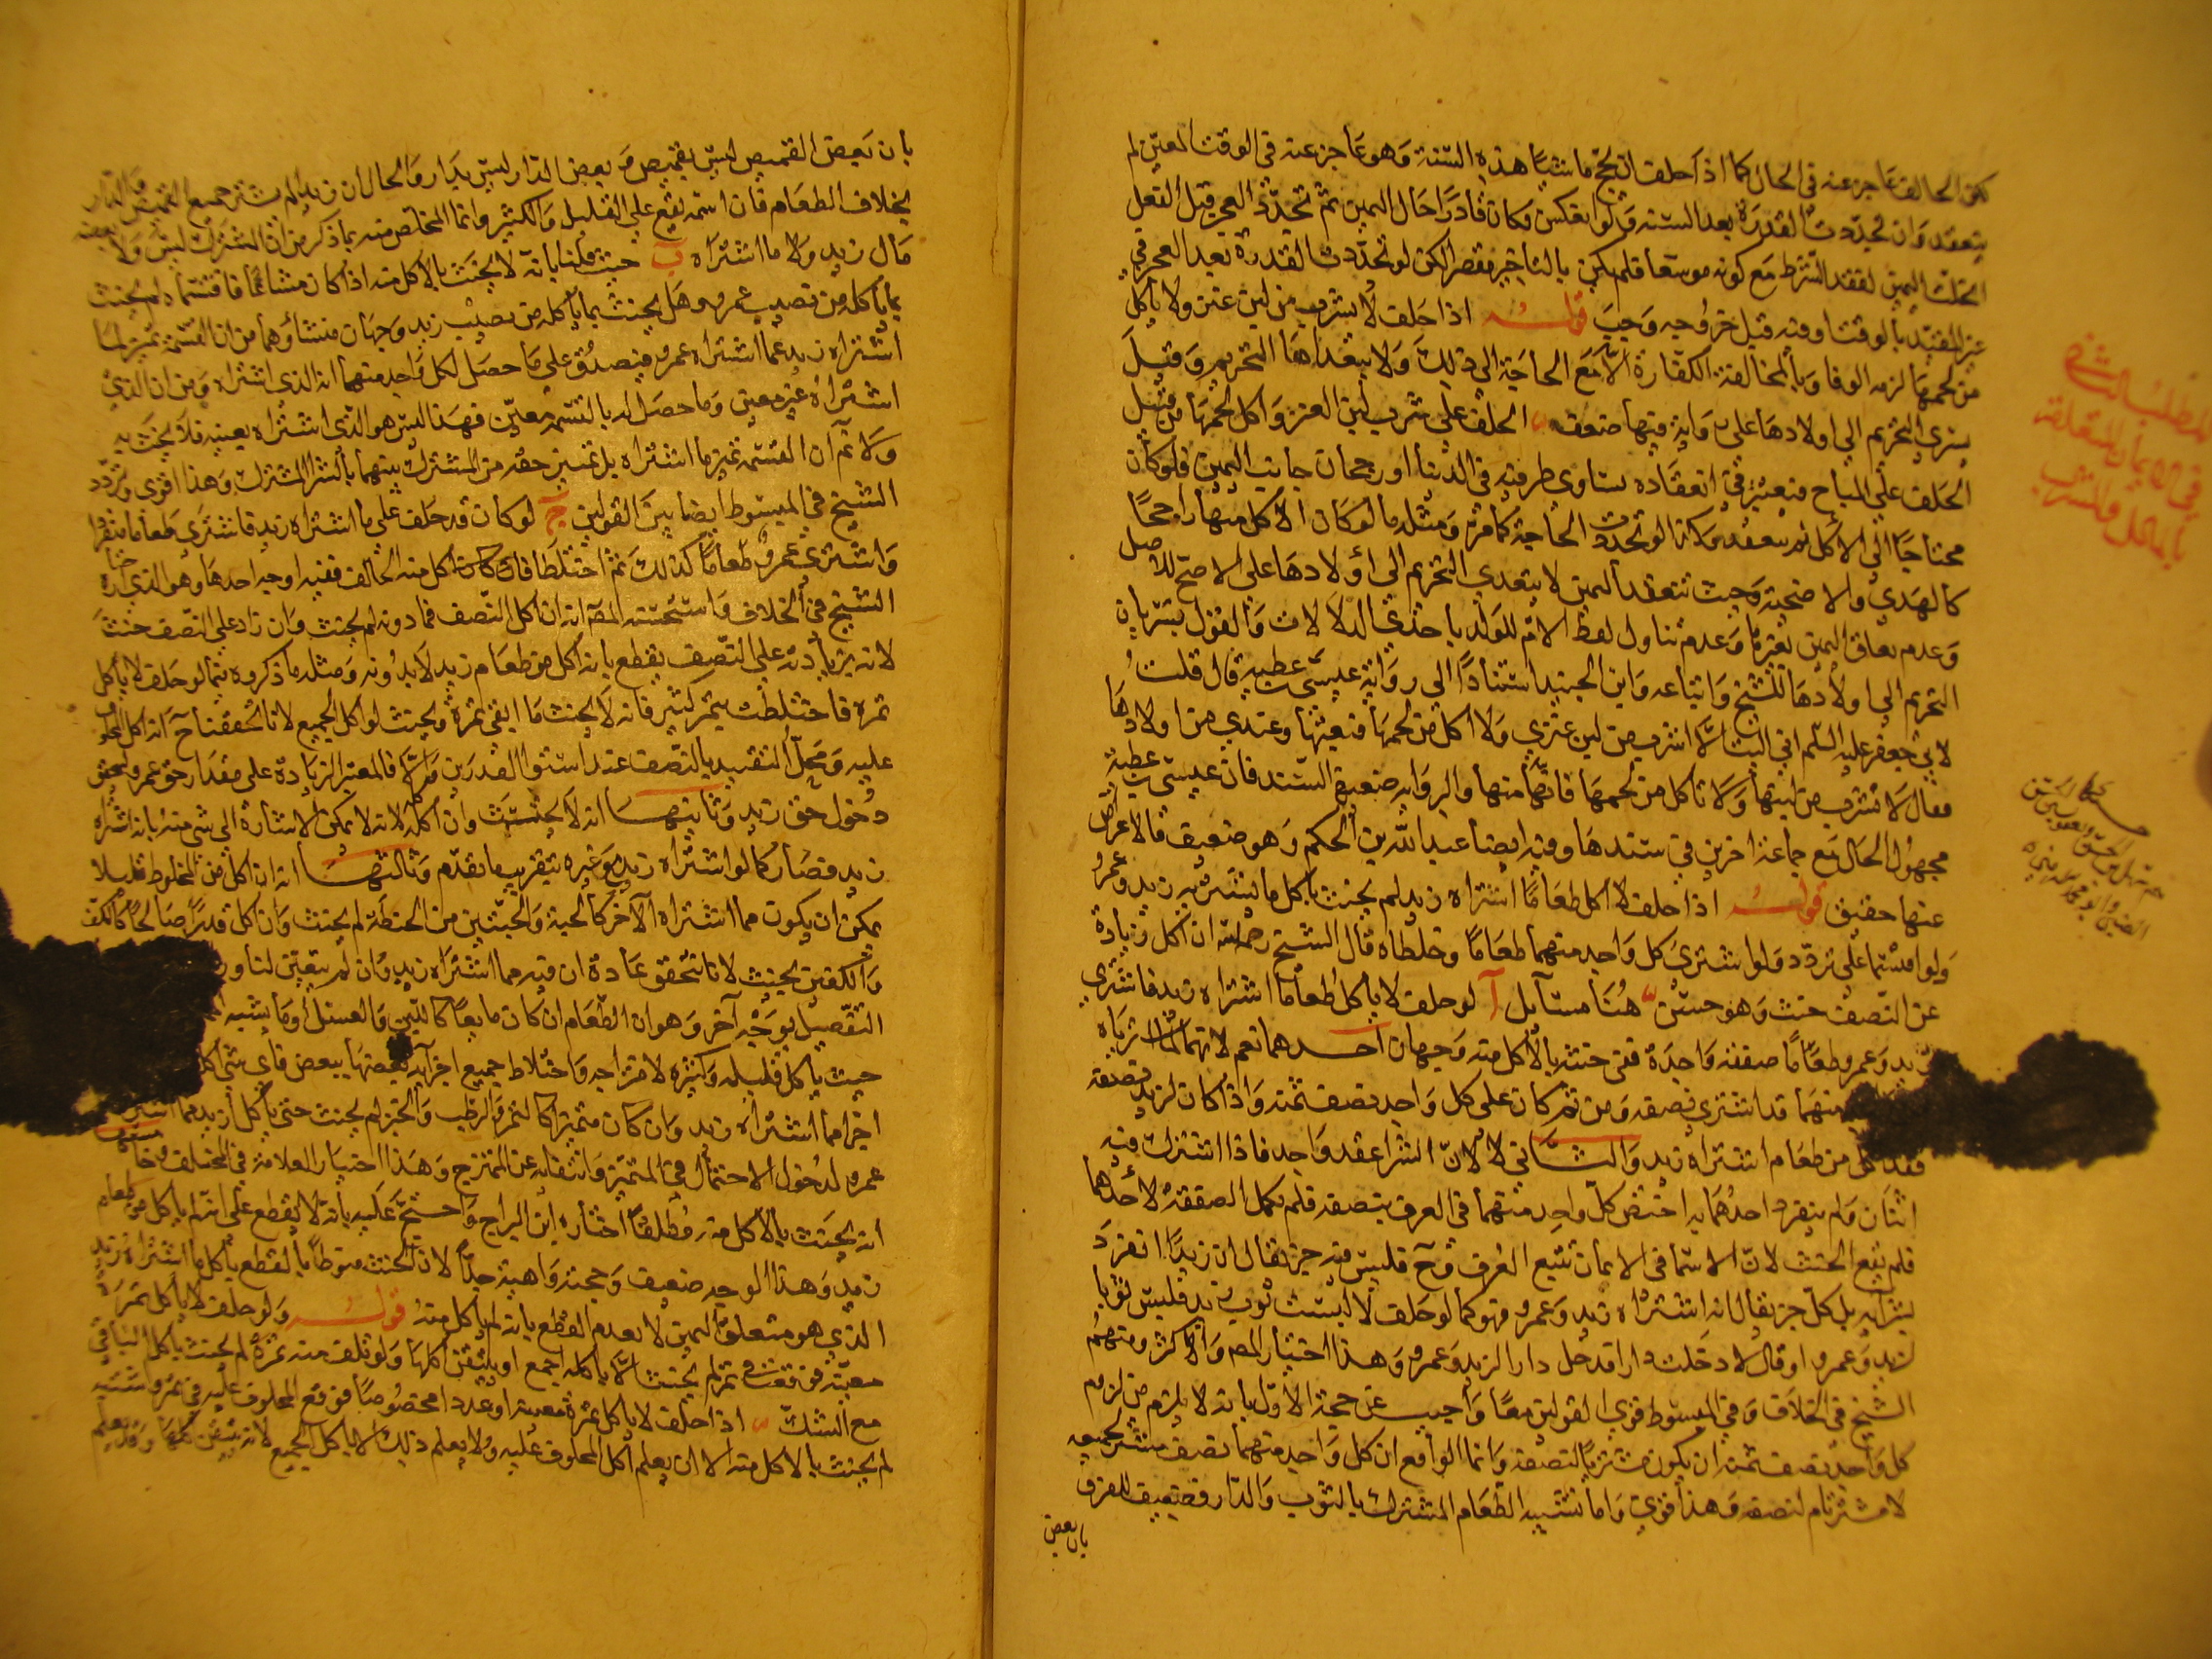 لكون الحالف عاجزا عنه في الحال كما اذا حلف ليحج ماشيا هذه السنة وهو عاجز عنه في الوقت المعين لم
ينعقد وان تجددت القدرة بعد السنة ولو انعكس فكان قادرا حال اليمين ثم تجدد العجز قبل الفعل
انحلت اليمين لفقد الشرط مع كونه موسعا فلم يكن بالتاخير مقصرا لكن لو تجددت القدرة بعد العجز في
غير المقيد بالوقت او فيه قبل خروجه وجب قوله اذا حلف لا يشرب من لبن عنز ولا ياكل
من لحمها لزمه الوفا وبالمخالفة الكفارة الا مع الحاجة الى ذلك ولا يتعداها التحريم وقيل
يسري التحريم الى اولادها على رواية فيها ضعف الحلف على شرب لبن العنز واكل لحمها من قبيل
الحلف على المباح فيعتبر في انعقاده تساوي طرفيه في الدنيا او رجحان جانب اليمين فلو كان
محتاجا الى الاكل لم ينعقد وكذا لو تجددت الحاجة كما مر ومثله ما لو كان الاكل منها راجحا
كالهدي والاضحية وحيث تنعقد اليمين لا يتعدى التحريم الى اولادها على الاصح للاصل
وعدم تعلق اليمين بغيرها وعدم تناول لفظ الام للولد باحدى الدلالات والقول بسريان
التحريم الى اولادها للشيخ واتباعه وابن الجنيد استنادا الى رواية عيسى بن عطية قال قلت
لابي جعفر عليه السلم اني اليت الا اشرب من لبن عنزي ولا اكل من لحمها فبعتها وعندي من اولادها
فقال لا تشرب من لبنها ولا تاكل من لحمها فانها منها والرواية ضعيفة السند فان عيسى بن عطية
مجهول الحال مع جماعة اخرين في سندها وفيه ايضا عبد الله بن الحكم وهو ضعيف فالاعراض
عنها حقيق قوله اذا حلف لا اكل طعاما اشتراه زيد لم يحنث باكل ما يشتريه زيد وعمرو
ولو اقتسما على تردد ولو اشترى كل واحد منهما طعاما وخلطاه قال الشيخ رحمه الله ان اكل زيادة
عن النصف حنث وهو حسن هنا مسايل آ لو حلف لا ياكل طعاما اشتراه زيد فاشترى
زيد وعمرو طعاما صفقة واحدة ففي حنثه بالاكل منه وجهان احدهما نعم لانهما لما اشترياه
منهما قد اشترى نصفه ومن ثم كان على كل واحد نصف ثمنه واذا كان لزيد نصفه
فقد اكل من طعام اشتراه زيد والثاني لا لان الشرا عقد واحد فاذا اشترك فيه
اثنان ولم ينفرد احدهما به اختص كل واحد منهما في العرف بنصفه فلم تكمل الصفقة لاحدهما
فلم يقع الحنث لان الاسما في الايمان تتبع العرف وح فليس فيه جزء يقال ان زيدا انفرد
بشرائه بل كل جزء يقال انه اشتراه زيد وعمرو فهو كما لو حلف لا لبست ثوب زيد فلبس ثوبا
لزيد وعمرو او قال لا دخلت دارا فدخل دارا لزيد وعمرو وهذا اختيار المص والاكثر ومنهم
الشيخ في الخلاف وفي المبسوط قوي القولين معا واجيب عن حجة الاول بانه لا يلزم من لزوم
كل واحد نصف ثمنه ان يكون مشتريا لنصفه وانما الواقع ان كل واحد منهما نصف مشتر لجميعه
لا مشتر تام لنصفه وهذا قوي واما تشبيه الطعام المشترك بالثوب والدار فضعيف للفرق
بان بعض
المطلب الثاني
في الايمان المتعلقة
بالماكل والمشرب
بان بعض القميص ليس بقميص وبعض الدار ليس بدار والحال ان زيدا لم يشتر جميع القميص والدار
بخلاف الطعام فان اسمه يقع على القليل والكثير وانما المخلص منه بما ذكر من ان المشترك ليس ولا بعضه
مال زيد ولا ما اشتراه ب حيث قلنا بانه لا يحنث بالاكل منه اذا كان مشاعا فاقتسماه لم يحنث
بما ياكل من نصيب عمرو وهل يحنث بما ياكله من نصيب زيد وجهان منشاؤهما من ان القسمة تميز لما
اشتراه زيد عما اشتراه عمرو فيصدق على ما حصل لكل واحد منهما انه الذي اشتراه ومن ان الذي
اشتراه غير معين وما حصل له بالقسمة معين فهذا ليس هو الذي اشتراه بعينه فلا يحنث به
ولا ثم ان القسمة تميز ما اشتراه بل تميز حقه من المشترك بينهما بالشرا المشترك وهذا اقوى وتردد
الشيخ في المبسوط ايضا بين القولين ج لو كان قد حلف على ما اشتراه زيد فاشترى طعاما منفردا
واشترى عمرو طعاما كذلك ثم اختلطا فان كان اكل منه الحالف ففيه اوجه احدها وهو الذي اختاره
الشيخ في الخلاف واستحسنه المص انه ان اكل النصف فما دونه لم يحنث وان زاد على النصف حنث
لانه بزيادته على النصف يقطع بانه اكل من طعام زيد لا بدونه ومثله ما ذكروه فيما لو حلف لا ياكل
تمرة فاختلطت بتمر كثير فانه لا يحنث ما ابقى تمرة ويحنث لو اكل الجميع لانا تحققنا ح انه اكل المحلوف
عليه ومحل التقييد بالنصف عند استوا القدرين والا فالمعتبر الزيادة على مقدار حق عمرو ليتحقق
دخول حق زيد وثانيها انه لا يحنث وان اكله كله لانه لا يمكن الاشارة الى شئ منه بانه اشتراه
زيد فصار كما لو اشتراه زيد مع غيره بتقريب ما تقدم وثالثها انه ان اكل من المخلوط قليلا
يمكن ان يكون مما اشتراه الآخر كالحبة والحبتين من الحنطة لم يحنث وان اكل قدرا صالحا كالكف
والكفين يحنث لانا نتحقق عادة ان فيه مما اشتراه زيد وان لم يتعين لنا
التفصيل بوجه آخر وهو ان الطعام ان كان مايعا كاللبن والعسل او ما يشبه
حيث ياكل قليله وكثيره لامتزاجه واختلاط جميع اجزائه بعضها ببعض فاي شئ اكل
اجزا مما اشتراه زيد وان كان متميزا كالتمر والرطب والخبز لم يحنث حتى ياكل ازيد مما اشتراه
عمرو لدخول الاحتمال في المتميز وانتفائه عن الممتزج وهذا اختيار العلامة في المختلف
انه يحنث بالاكل منه مطلقا اختاره ابن البراج واحتج عليه بانه لا يقطع على انه لم ياكل من طعام
زيد وهذا الوجه ضعيف وحجته واهية جدا لان الحنث منوط بالقطع باكل ما اشتراه زيد
الذي هو متعلق اليمين لا بعدم القطع بانه لم ياكل منه قوله ولو حلف لا ياكل تمرة
معينة فوقعت في تمر لم يحنث الا باكله اجمع او بتيقن اكلها ولو تلف منه تمرة لم يحنث باكل الباقي
مع الشك اذا حلف لا ياكل تمرة معينة او عددا مخصوصا فوقع المحلوف عليه في تمر واشتبه
لم يحنث بالاكل منه الا ان يعلم اكل المحلوف عليه ولا يعلم ذلك الا باكل الجميع لانه بتيقن كلها وقد يعلم